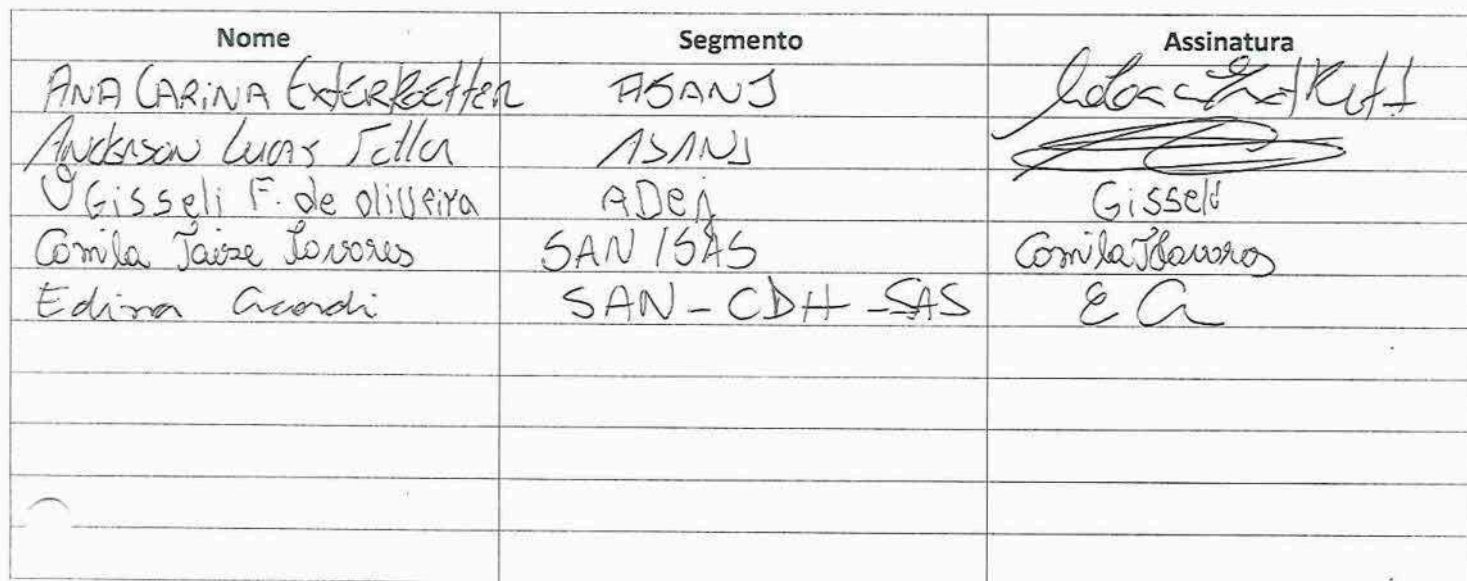 Nome Segmento Assinatura
ANA CARINA EXTERKOETTER ASANJ
Anderson Lucas ASANJ
Gisseli F. de oliveira ADEJ Gisseli
Camila Taize Tavares SAN/SAS Camila TTavares
Edina Acordi SAN-CDH-SAS E A